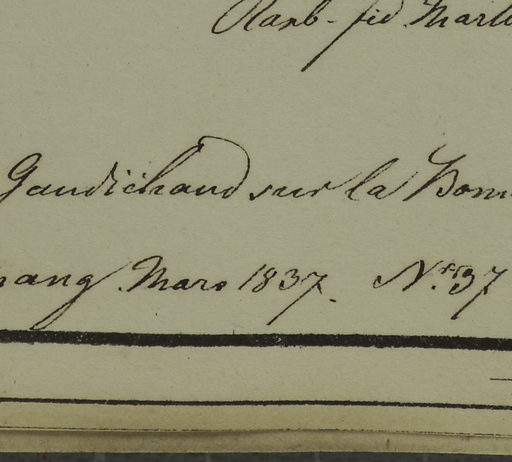 Roxb. fid. Mart
Gaudichaud sur la Boni
nang Mars 1837. N.º 37